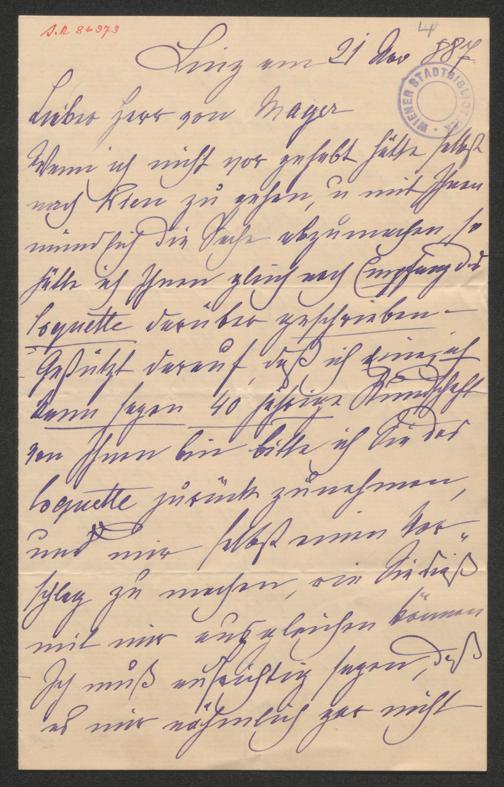 J.N. 84373
4
Linz am 21 Nov 887
WIENER STADTBIBLIOTHEK
Lieber Herr von Mayer
Wenn ich nicht vor gehabt hätte selbst
nach Wien zu gehen, u mit Ihnen
mündlich die Sache abzumachen, so
hätte ich Ihnen gleich nach Empfang der
Coquette darüber geschrieben –
Gestützt darauf, daß ich
kann sagen 40 jährige Kundschaft
von Ihnen bin bitte ich Sie das
Coquette zurück zunehmen,
und mir selbst einen Vor„
schlag zu machen, wie Sie dieß
mit mir ausgleichen können
Ich muß aufrichtig sagen, daß
es mir nähmlich gar nicht